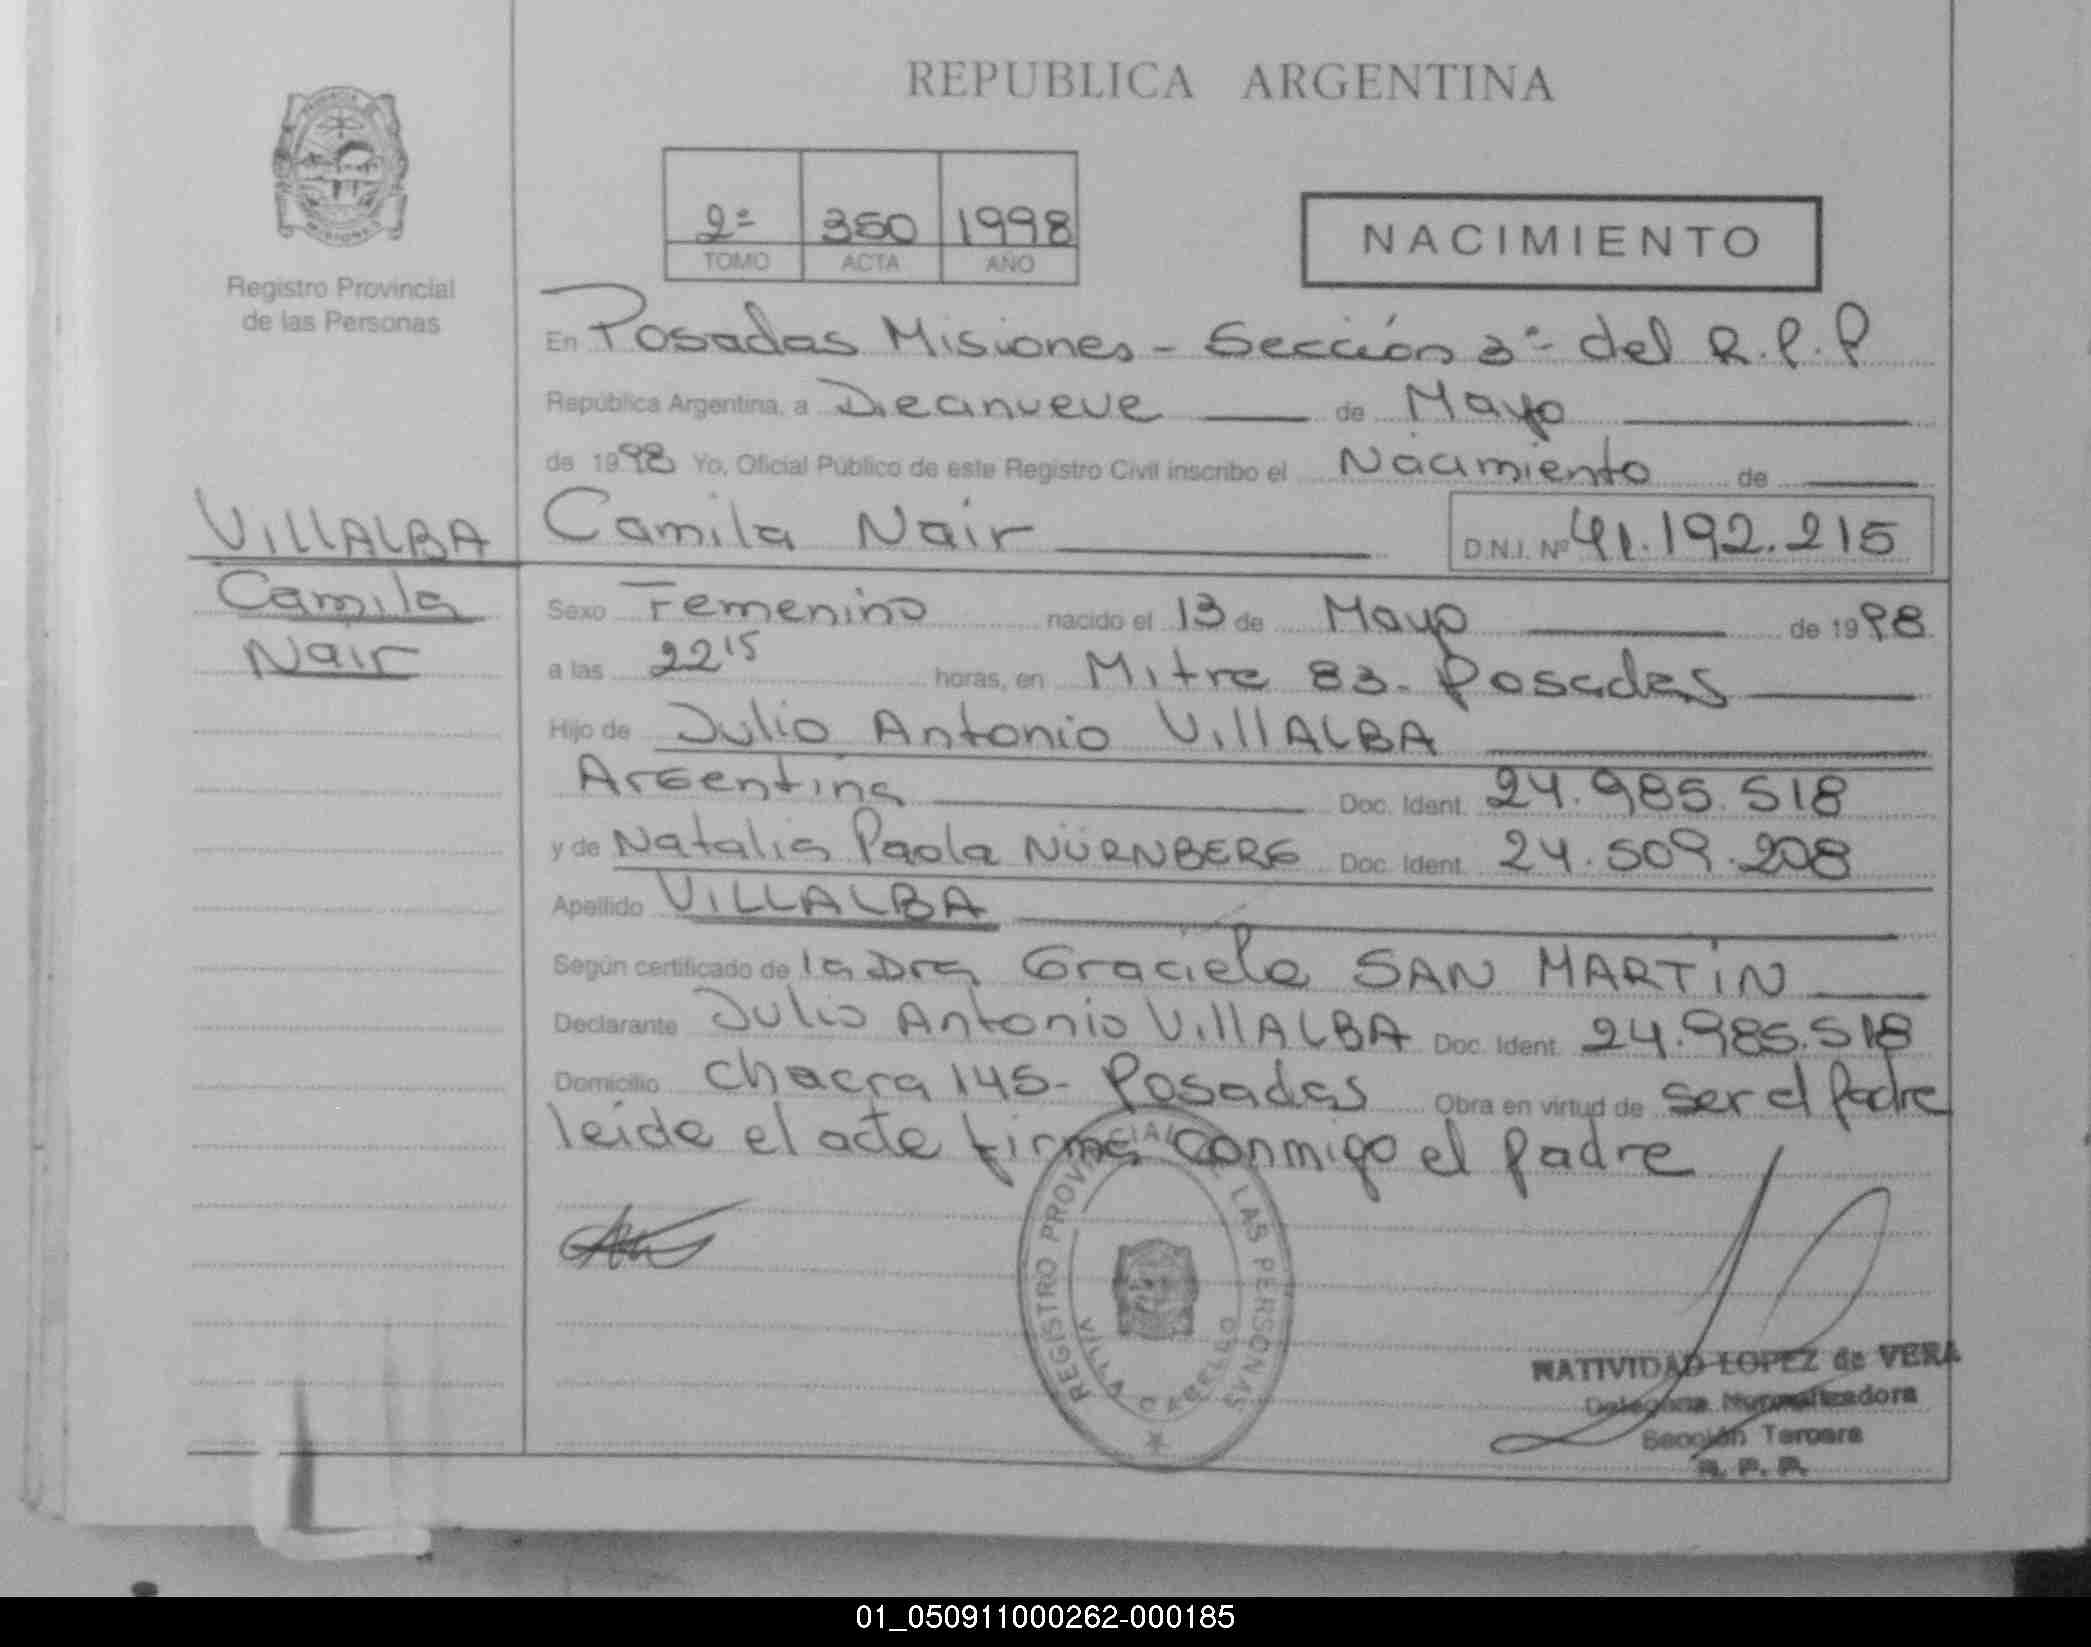 REPUBLICA ARGENTINA
2º 350 1998
TOMO ACTA AÑO
NACIMIENTO
MISIONES
Registro Provincial
de las Personas
En Posadas Misiones - Sección 3º del R.P.P
República Argentina, a Diecinueve de Mayo
de 1998 Yo, Oficial Público de este Registro Civil inscribo el Nacimiento de
VILLALBA
Camila
Nair
Camila Nair D.N.I. Nº 41.192.215
Sexo Femenino nacido el 13 de Mayo de 1998
a las 22 15 horas, en Mitre 83 - Posadas
Hijo de Julio Antonio VillALBA
Argentina Doc. Ident. 24.985.518
y de Natalia Paola NÜRNBERG Doc. Ident. 24.509.208
Apellido VILLALBA
Según certificado de la Dra Graciela SAN MARTIN
Declarante Julio Antonio VillALBA Doc. Ident. 24.985.518
Domicilio Chacra 145 - Posadas Obra en virtud de ser el padre
leida el acta firma conmigo el padre
REGISTRO PROVINCIAL DE LAS PERSONAS
VILLA CABELLO
NATIVIDAD LOPEZ de VERA
Delegada Normalizadora
Sección Tercera
R. P. P.
01_050911000262-000185